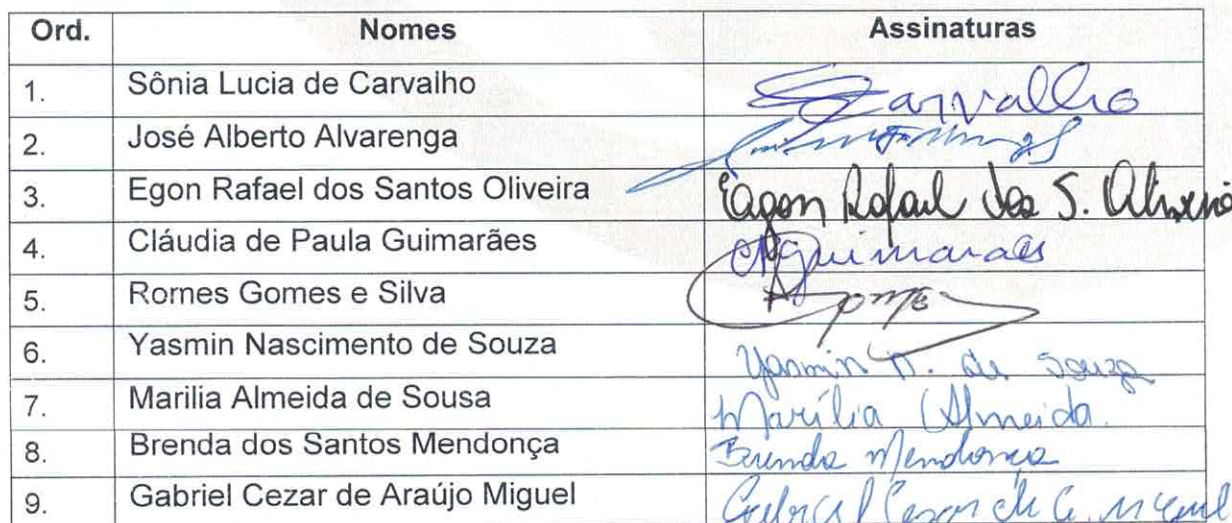 Ord. Nomes Assinaturas
1. Sônia Lucia de Carvalho Carvalho
2. José Alberto Alvarenga
3. Egon Rafael dos Santos Oliveira Egon Rafael dos S. Oliveira
4. Cláudia de Paula Guimarães CPGuimaraes
5. Rornes Gomes e Silva
6. Yasmin Nascimento de Souza Yasmin N. de Souza
7. Marilia Almeida de Sousa Marília Almeida.
8. Brenda dos Santos Mendonça Brenda Mendonça
9. Gabriel Cezar de Araújo Miguel Gabriel Cezar de A. Miguel